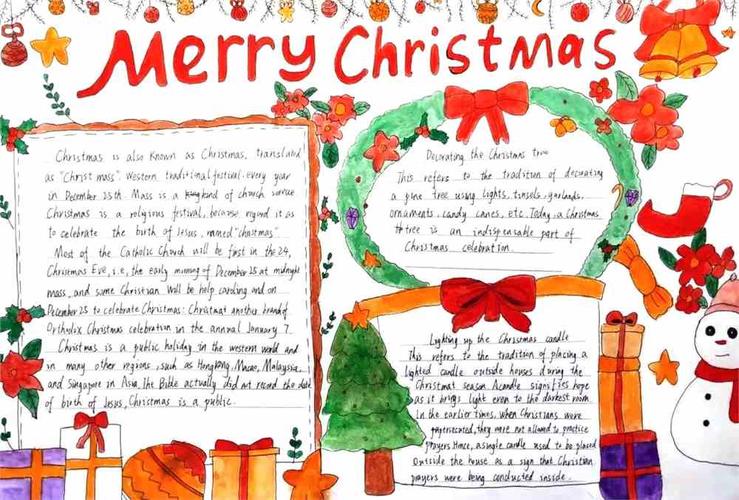 Merry Christmas
Christmas is also known as Christmas, translated
as "Christ mass". Western traditional festival. every year
in December 25th. Mass is a kind of church service
Christmas is a religious festival, because regard it as
to celebrate the birth of Jesus, named "christmas"
Most of the Catholic Church will be first in the 24,
Christmas Eve, i.e, the early morning of December 25 at midnight
mass, and some Christian will be help caroling and on
December 25 to celebrate Christmas: Christmat another brand of
Orthodox Christmas celebration in the annual January 7.
Christmas is a public holiday in the western world and
in many other regions, such as HongKong, Macao, Malaysia
and Singapore in Asia. The Bible actually did not record the date
of birth of Jesus, Christmas is a public.
Decorating the Christmas tree
This refers to the tradition of decorating
a pine tree using lights, tinsels, garlands,
ornaments, candy canes, etc. Today, a Christmas
tree is an indispensable part of
Christmas celebration.
Lighting up the Christmas candle
This refers to the tradition of placing a
lighted candle outside houses during the
Christmat season A candle signifies hope
as it brings light even to the darkest room
In the earlier times, when Christians were
persecuted, they were not allowed to practice
prayers Hence, a single candle used to be placed
outside the house as a sign that Christian
prayers were being conducted inside.